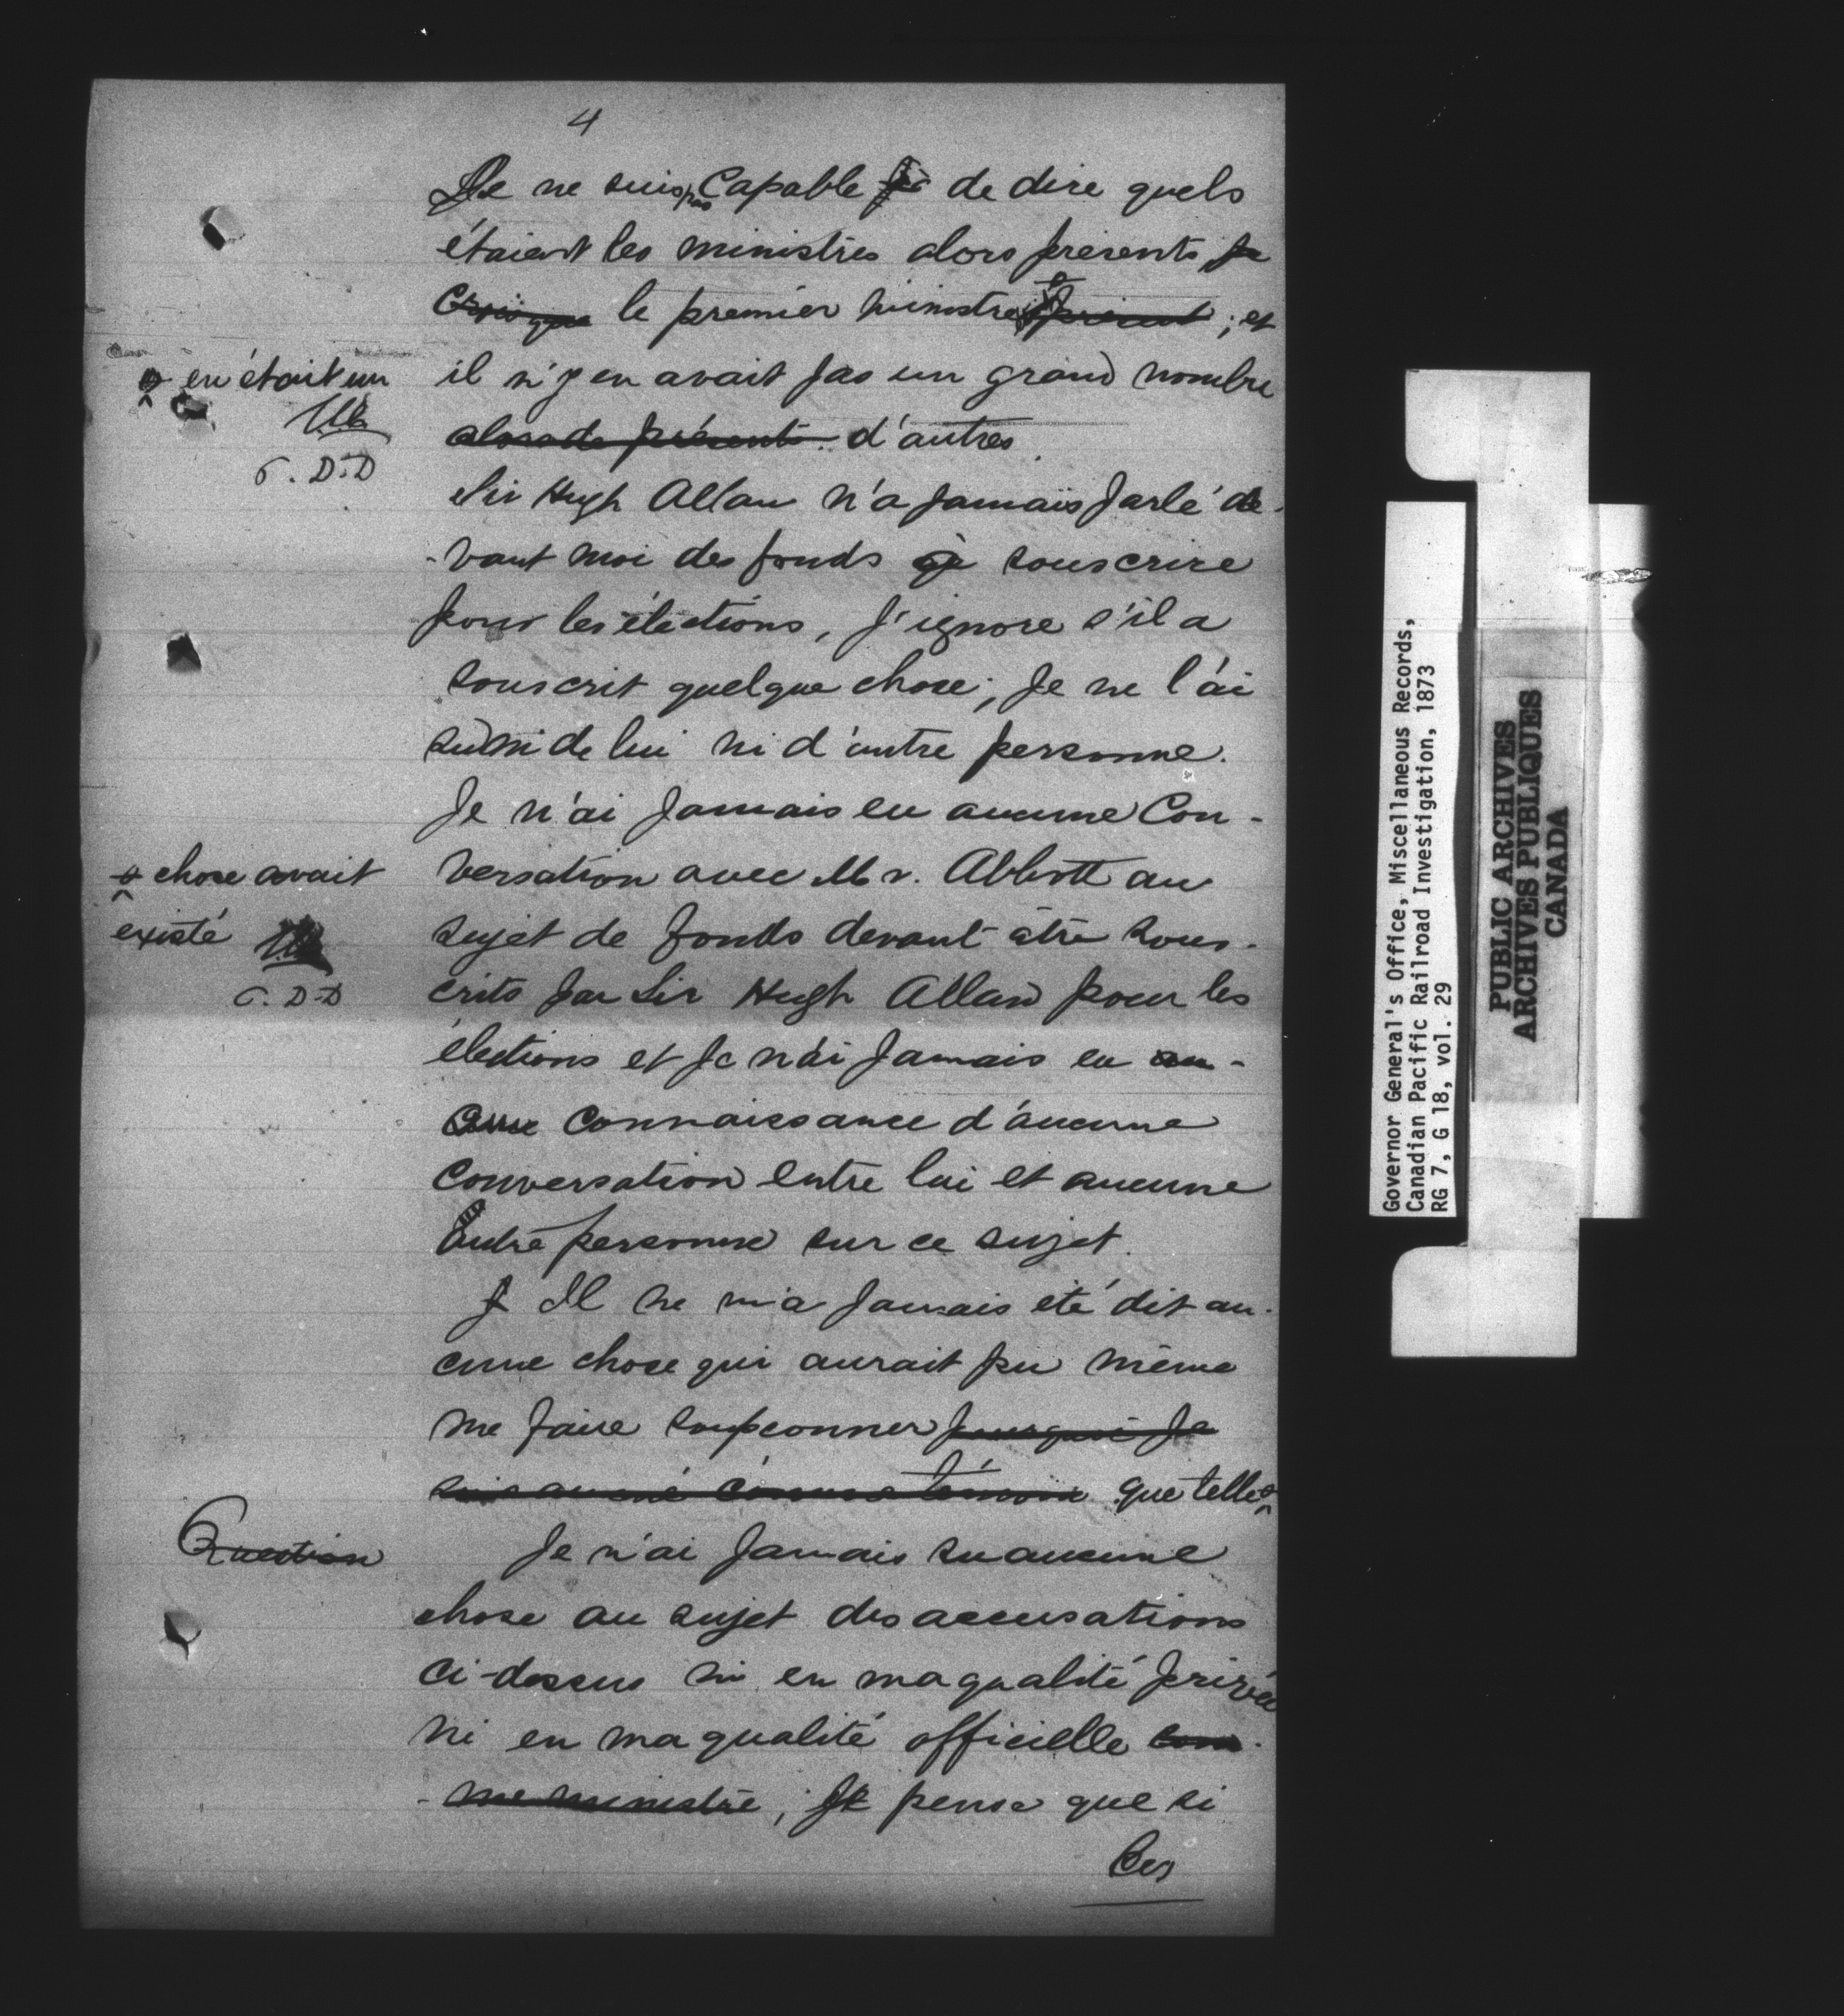 4
Je ne suis pas Capable de dire quels
étaient les ministres alors présents, Je
Crois que le premier ministre présent ; et
en était un
il n'y en avait pas un grand nombre
alors de présents d'autres.
C. D. D
Sir Hugh Allan n'a jamais parlé de-
-vant moi des fonds à souscrire
pour les élections, J'ignore s'il a
souscrit quelque chose; Je ne l'ai
su ni de lui ni d'autre personne.
Je n'ai Jamais eu aucune Con-
chose avait
versation avec Mr. Abbott au
existé
sujet de fonds devant être sous-
C. D-D
crits par Sir Hugh Allan pour les
élections et Je n'ai Jamais eu au-
cune Connaissance d'aucune
Conversation entre lui et aucune
autre personne sur ce sujet.
J Il ne m'a Jamais été dit au-
cune chose qui aurait pu même
me faire soupconner pourquoi Je
suis amené comme témoin que telle
Question
Je n'ai Jamais su aucune
chose au sujet des accusations
ci-dessus ni en ma qualité privée
ni en ma qualité officielle com-
-me ministre ; Je pense que si
Ces
Governor General's Office, Miscellaneous Records,
Canadian Pacific Railroad Investigation, 1873
RG 7, G 18, vol. 29
PUBLIC ARCHIVES
ARCHIVES PUBLIQUES
CANADA